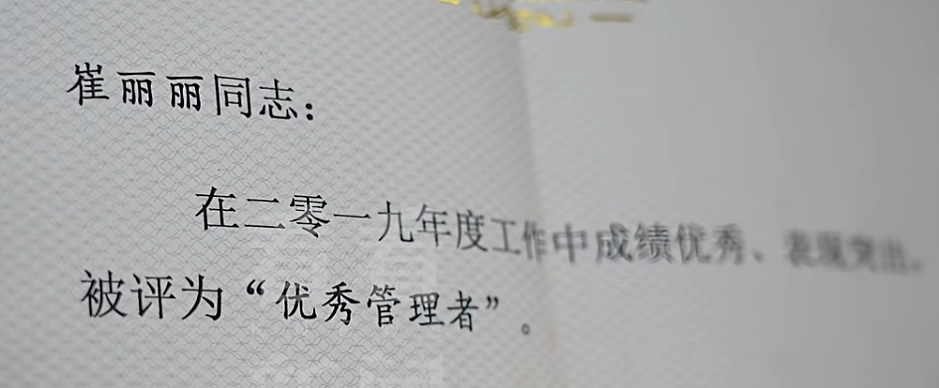 崔丽丽同志：
在二零一九年度工作中成绩优秀、表现突出，
被评为“优秀管理者”。